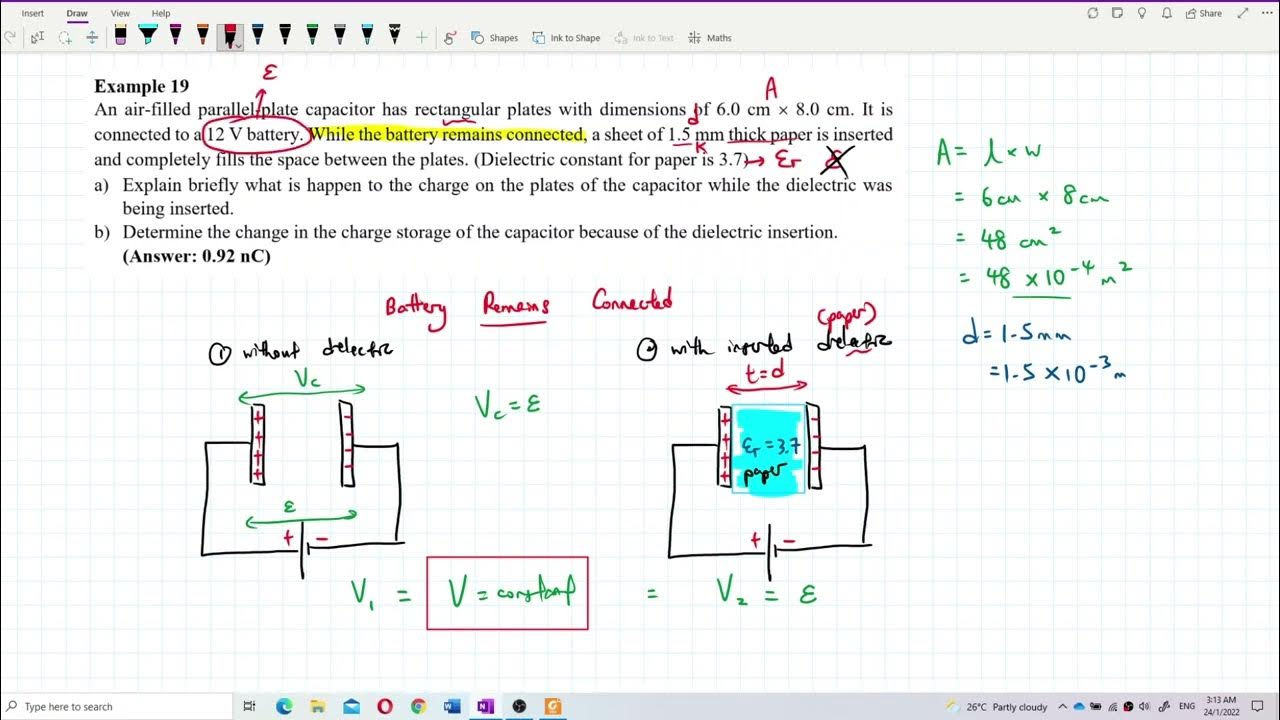 Insert Draw View Help
Share
Shapes Ink to Shape Ink to Text Maths
ε
Example 19
A
An air-filled parallel-plate capacitor has rectangular plates with dimensions of 6.0 cm × 8.0 cm. It is
d
connected to a 12 V battery. While the battery remains connected, a sheet of 1.5 mm thick paper is inserted
and completely fills the space between the plates. (Dielectric constant for paper is 3.7) → εr
a) Explain briefly what is happen to the charge on the plates of the capacitor while the dielectric was
being inserted.
b) Determine the change in the charge storage of the capacitor because of the dielectric insertion.
(Answer: 0.92 nC)
A = l × w
= 6cm × 8cm
= 48 cm²
= 48 × 10⁻⁴ m²
d = 1.5mm
= 1.5 × 10⁻³ m
Battery Remains Connected
① without delectric
Vc
+ + + +
- - - -
ε
+ -
Vc = ε
(paper)
② with inserted delectric
t = d
+ + + +
εr = 3.7
paper
- - - -
+ -
V₁ = V = constant = V₂ = ε
Type here to search
26°C Partly cloudy
ENG
3:13 AM
24/1/2022